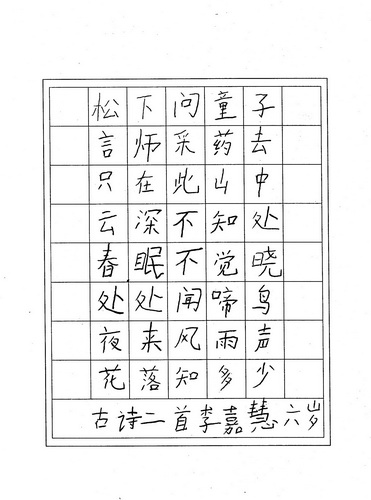 松下问童子
言师采药去
只在此山中
云深不知处
春眠不觉晓
处处闻啼鸟
夜来风雨声
花落知多少
古诗二首李嘉慧六岁